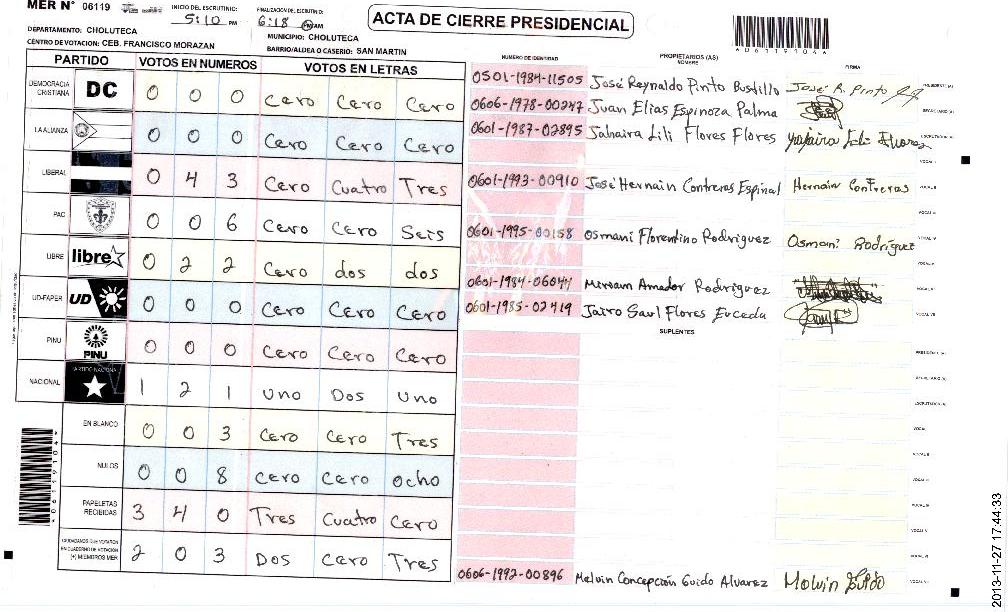 MER Nº 06119
INICIO DEL ESCRUTINIO:
5:10 PM
FINALIZACION DEL ESCRUTINIO:
6:18 PM/AM
ACTA DE CIERRE PRESIDENCIAL
*061191044*
DEPARTAMENTO: CHOLUTECA
MUNICIPIO: CHOLUTECA
CENTRO DE VOTACION: CEB. FRANCISCO MORAZAN
BARRIO/ALDEA O CASERIO: SAN MARTIN
PARTIDO VOTOS EN NUMEROS VOTOS EN LETRAS
NUMERO DE IDENTIDAD PROPIETARIOS (AS) NOMBRE FIRMA
DEMOCRACIA CRISTIANA DC 0 0 0 Cero Cero Cero
LA ALIANZA 0 0 0 Cero Cero Cero
LIBERAL 0 4 3 Cero Cuatro Tres
PAC 0 0 6 Cero Cero Seis
LIBRE libre 0 2 2 Cero dos dos
UD-FAPER UD 0 0 0 Cero Cero Cero
PINU PINU 0 0 0 Cero Cero Cero
NACIONAL PARTIDO NACIONAL 1 2 1 uno Dos uno
EN BLANCO 0 0 3 Cero Cero Tres
NULOS 0 0 8 Cero Cero ocho
PAPELETAS RECIBIDAS 3 4 0 Tres Cuatro Cero
CIUDADANOS QUE VOTARON EN CUADERNO DE VOTACION (+) MIEMBROS MER 2 0 3 Dos Cero Tres
0501-1984-11505 José Reynaldo Pinto Bustillo José R. Pinto PRESIDENTE (A)
0606-1978-00247 Juan Elias Espinoza Palma SECRETARIO (A)
0601-1987-02895 Jahaira Lili Flores Flores ESCRUTADOR (A)
VOCAL I
0601-1993-00910 José Hernain Contreras Espinal Hernain Contreras VOCAL II
VOCAL III
0601-1995-00158 Osmani Florentino Rodriguez Osmani Rodriguez VOCAL IV
VOCAL V
0601-1984-06044 Miriam Amador Rodriguez VOCAL VI
0601-1985-02419 Jairo Saul Flores Euceda VOCAL VII
SUPLENTES
PRESIDENTE (A)
SECRETARIO (A)
ESCRUTADOR (A)
VOCAL I
VOCAL II
VOCAL III
VOCAL IV
VOCAL V
VOCAL VI
0606-1992-00896 Melvin Concepción Guido Alvarez Melvin Guido VOCAL VII
*061191044*
2013-11-27 17:44:33